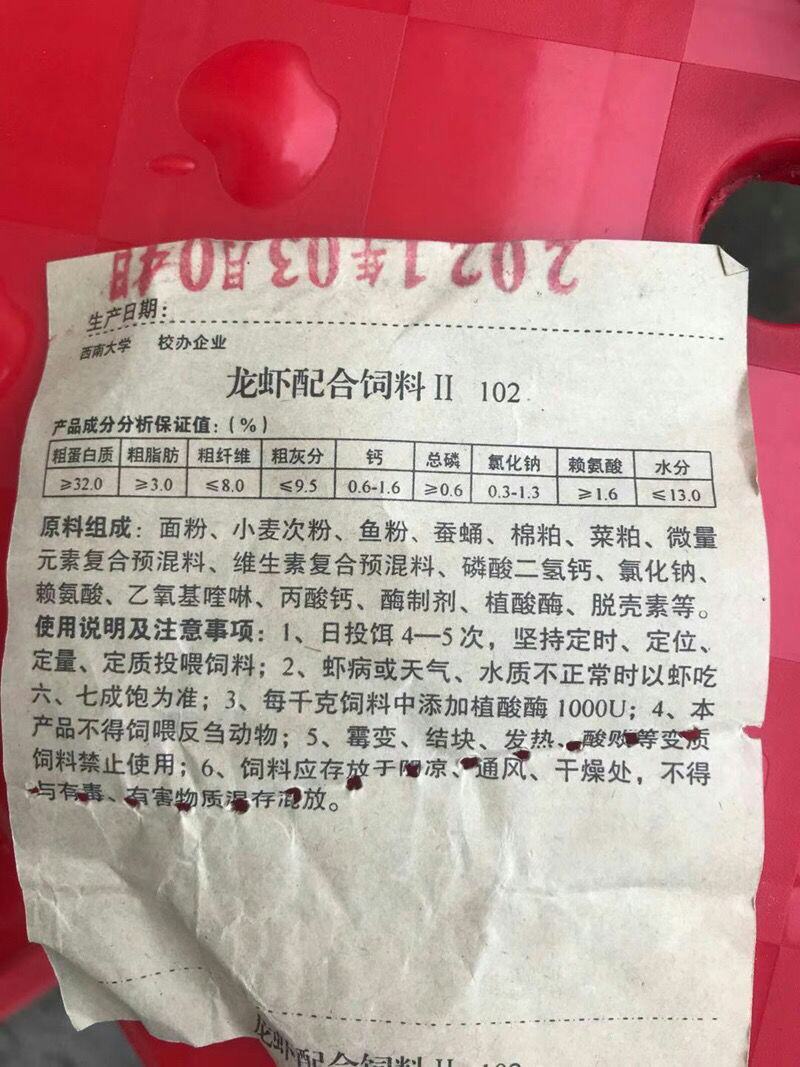 2021年03月04日
生产日期：
西南大学 校办企业
龙虾配合饲料II 102
产品成分分析保证值：(%)
粗蛋白质 粗脂肪 粗纤维 粗灰分 钙 总磷 氯化钠 赖氨酸 水分
≥32.0 ≥3.0 ≤8.0 ≤9.5 0.6-1.6 ≥0.6 0.3-1.3 ≥1.6 ≤13.0
原料组成：面粉、小麦次粉、鱼粉、蚕蛹、棉粕、菜粕、微量
元素复合预混料、维生素复合预混料、磷酸二氢钙、氯化钠、
赖氨酸、乙氧基喹啉、丙酸钙、酶制剂、植酸酶、脱壳素等。
使用说明及注意事项：1、日投饵4—5次，坚持定时、定位、
定量、定质投喂饲料；2、虾病或天气、水质不正常时以虾吃
六、七成饱为准；3、每千克饲料中添加植酸酶1000U；4、本
产品不得饲喂反刍动物；5、霉变、结块、发热、酸败等变质
饲料禁止使用；6、饲料应存放于阴凉、通风、干燥处，不得
与有毒、有害物质混存混放。
龙虾配合饲料II 102